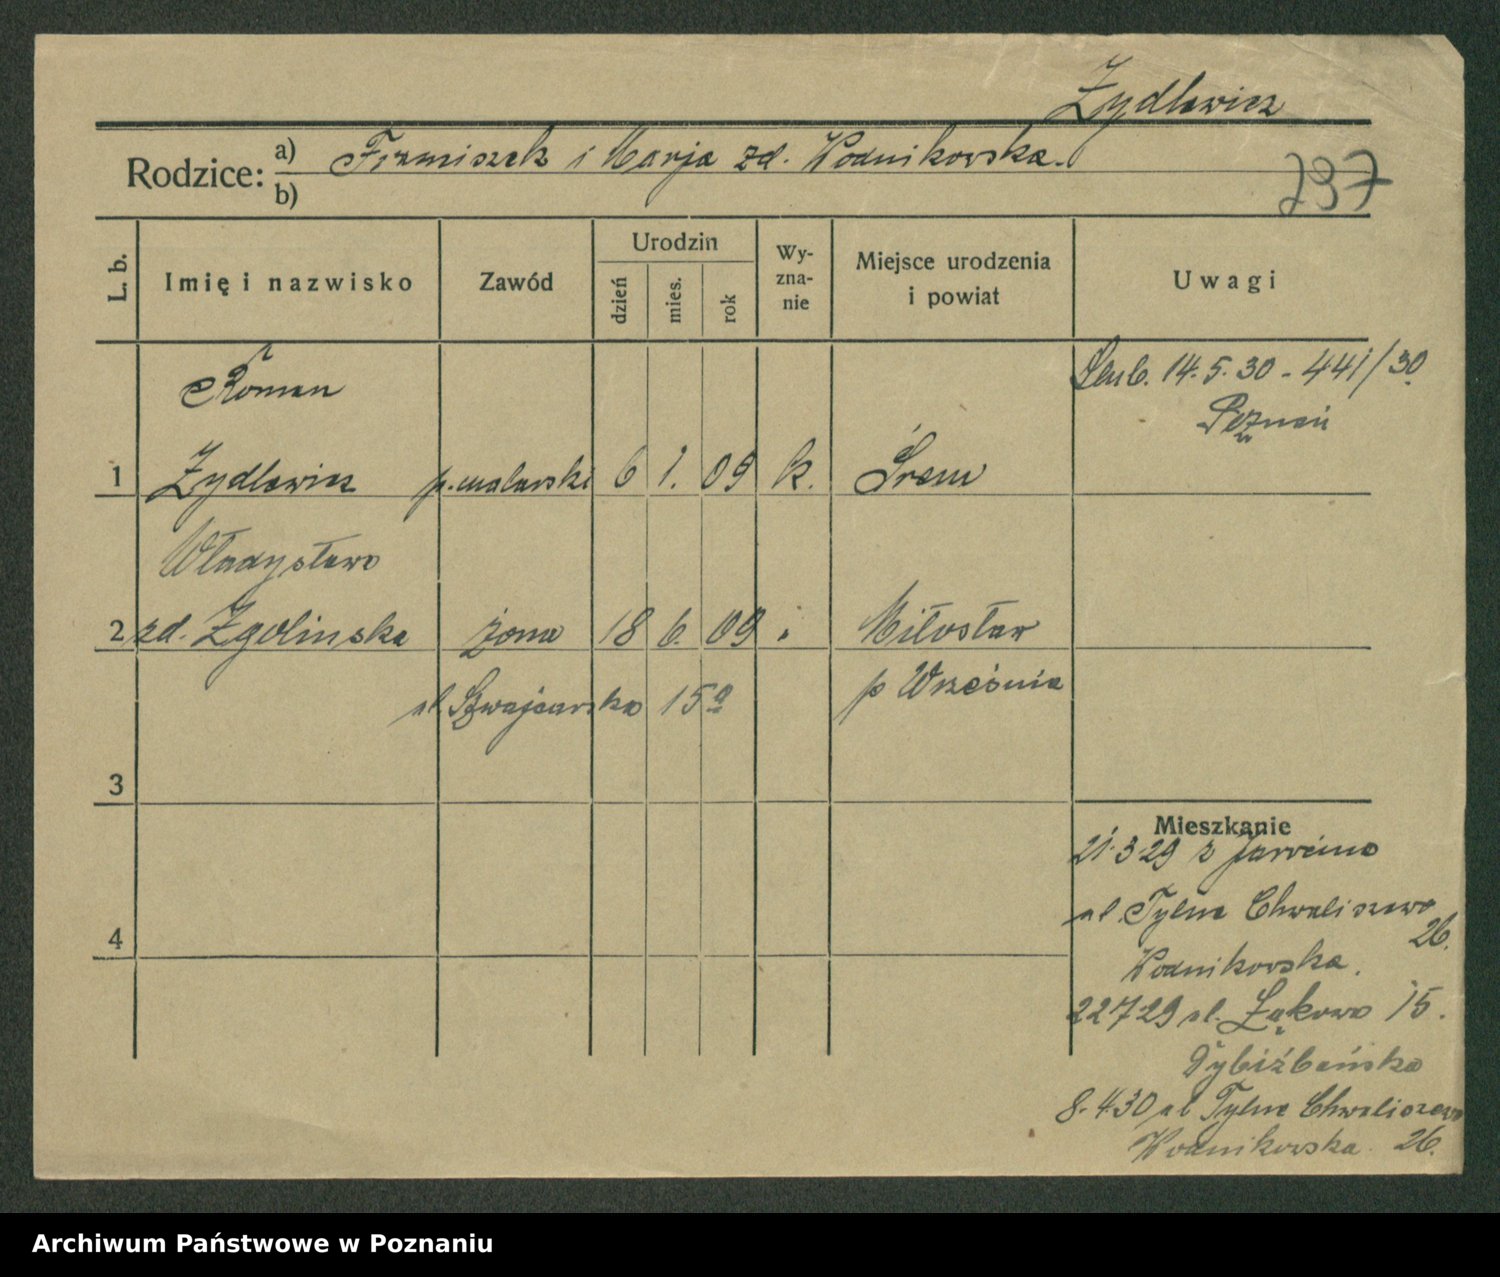 Żydlewicz
Rodzice: a) Franciszek i Marja zd. Wodnikowska.
b)
237
L. b.
Imię i nazwisko
Zawód
Urodzin
dzień
mies.
rok
Wy-
zna-
nie
Miejsce urodzenia
i powiat
Uwagi
Roman
Ślub. 14.5.30 - 441/30
Poznań
1 Żydlewicz p. malarski 6 1. 09 k. Śrem
Władysława
2 zd. Zgolinska żona 18 6. 09 " Miłosław
p Września
ul. Szwajcarska 15a
3
Mieszkanie
21.3.29 z
ul. Tylne Chwaliszewo
26.
4
Wodnikowska.
22729 ul. Łąkowa 15.
8.430 ul Tylne Chwaliszewo
Wodnikowska 26.
Archiwum Państwowe w Poznaniu